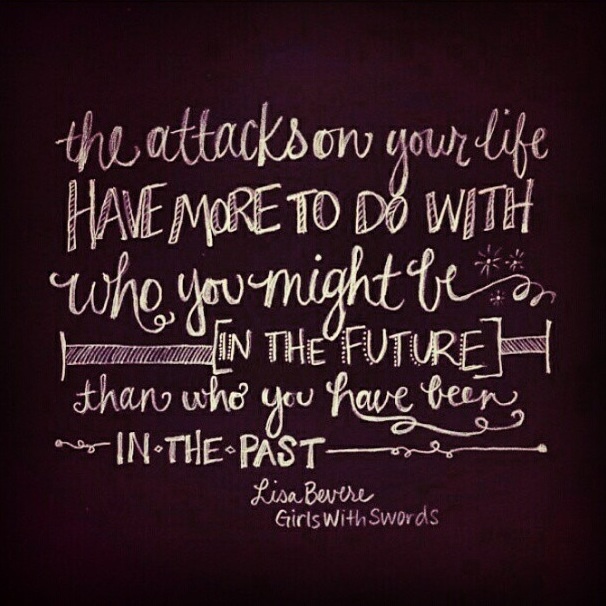 the attacks on your life
HAVE MORE TO DO WITH
who you might be
[IN THE FUTURE]
than who you have been
IN•THE•PAST
Lisa Bevere
GirlsWithSwords